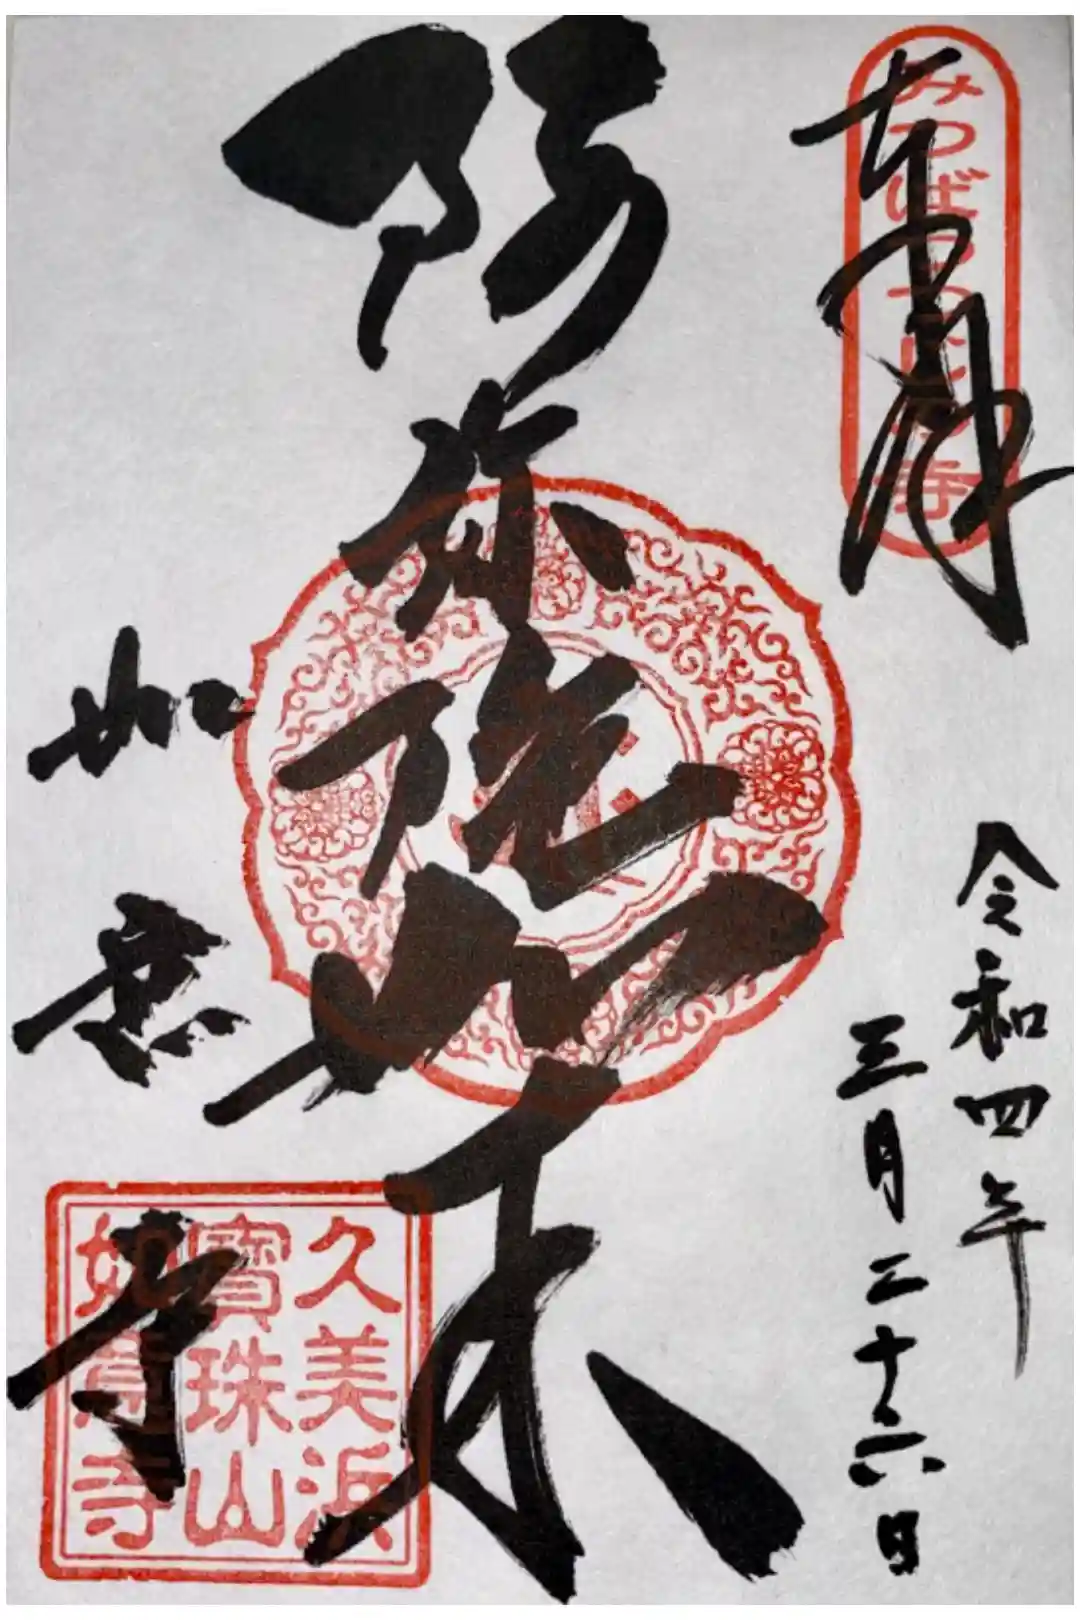 奉拝
みつばつつじの寺
令和四年
三月二十六日
阿弥陀如来
如意寺
久美浜
寶珠山
如意寺